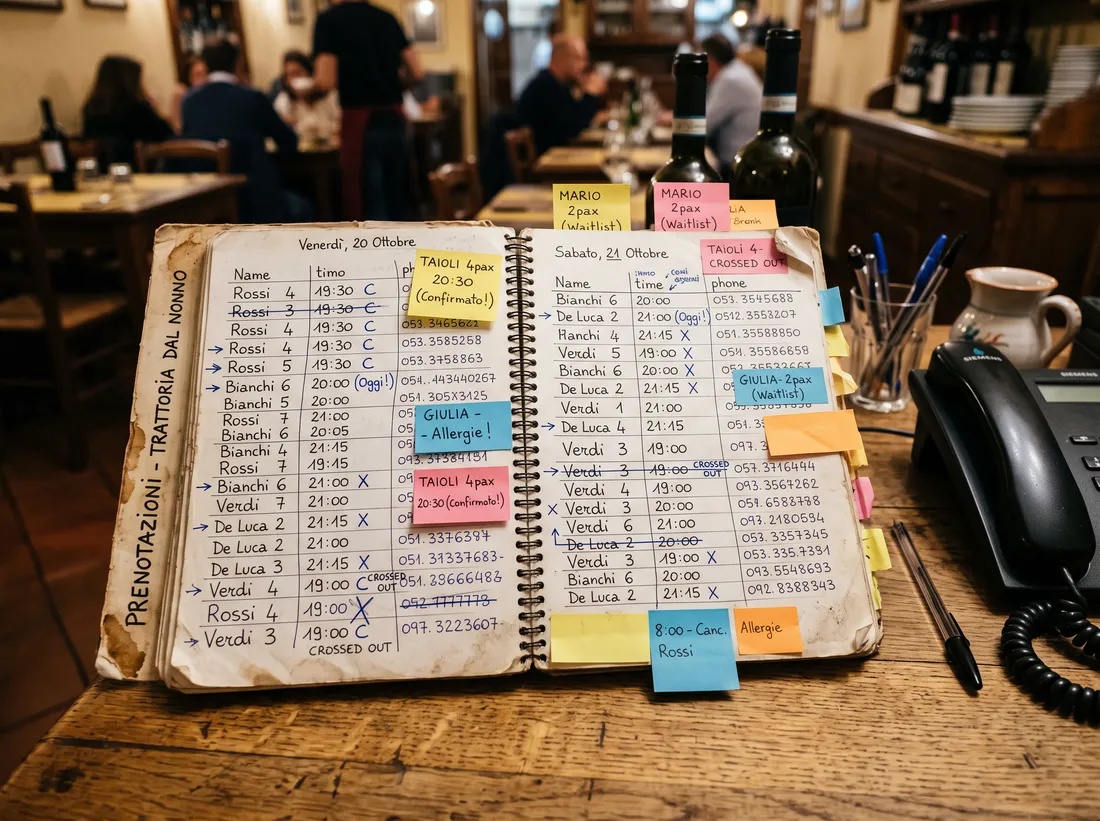 PRENOTAZIONI - TRATTORIA DAL NONNO
Venerdì, 20 Ottobre
Name timo
Rossi 4 19:30 C
Rossi 3 19:30 C
Rossi 4 19:30 C 053.3465621
→ Rossi 4 19:30 C 053.3585258
→ Rossi 5 19:30 C 053.3758863
→ Bianchi 6 20:00 (Oggi!) 054..443440267
Bianchi 5 20:00 051.305X3125
Rossi 7 21:00
Bianchi 6 20:05
Bianchi 4 21:15
Rossi 7 19:15 093.37384131
→ Bianchi 6 21:00 X
Verdi 7 21:00
→ De Luca 2 21:15 X
De Luca 3 21:00 051.3376397
De Luca 3 21:15 X 051.31337683-
→ Verdi 4 19:00 C CROSSED OUT 051.39666483
Rossi 4 19:00 X 092.7777773
→ Verdi 3 19:00 C 097.3223607
CROSSED OUT
TAIOLI 4pax
20:30
(Confirmato!)
GIULIA -
- Allergie!
TAIOLI 4pax
20:30 (confirmato!)
MARIO
2pax
(Waitlist)
MARIO
2pax
(Waitlist)
Sabato, 21 Ottobre
TAIOLI 4-
CROSSED OUT
Name time phone
Bianchi 6 20:00 053.3545688
→ De Luca 2 21:00 (Oggi!) 0512.3553207
Hanchi 4 21:15 X 051.35588850
Verdi 5 19:00 X 051.35586859
Bianchi 6 20:00 X
De Luca 2 21:15 X
Verdi 1 21:00
→ De Luca 4 21:15
Verdi 3 19:00
→ Verdi 3 19:00 CROSSED OUT 057.3716444
Verdi 4 19:00 093.3567262
X Verdi 3 20:00 051.6588788
Verdi 6 21:00 097.2180534
De Luca 2 20:00 053.3357345
Verdi 3 19:00 X 053.3357391
Bianchi 6 20:00 093.5548693
De Luca 2 21:15 X 092.8388343
GIULIA-2pax
(Waitlist)
8:00 - Canc.
Rossi
Allergie
SIEMENS
SIEMENS